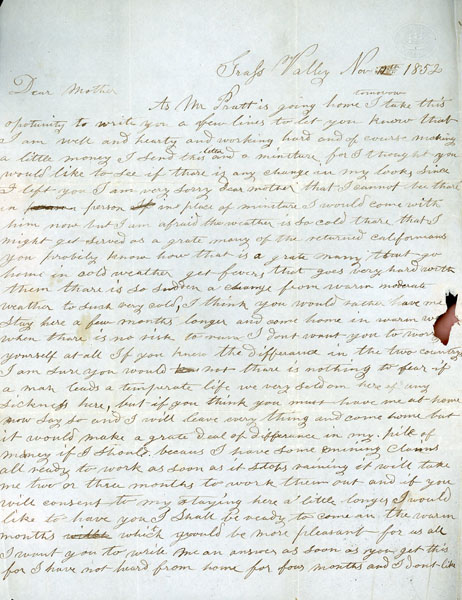 Grass Valley Nov 1852
Dear Mother
tomorrow
As Mr Pratt is going home I take this
oportunity to write you a few lines to let you know that
I am well and hearty and working hard and of course making
a little money I send this letter and a miniture for I thought you
would like to see if there is any change in my looks since
I left you I am very sorry dear mother that I cannot be there
in person in place of miniture I would come with
him now but I am afraid the weather is so cold there that I
might get served as a grate many of the returned californians
you probily know how that is a grate many that go
home in cold weather get fever, that goes very hard with
them there is so sudden a change from warm moderate
weather to such very cold, I think you would rather have me
stay here a few months longer and come home in warm
when there is no risk to run I dont want you to worry
yourself at all If you knew the differance in the two countrys
I am sure you would not there is nothing to fear if
a man leads a temperate life we very seldom hear of any
sickness here, but if you think you must have me at home
now say so and I will leave every thing and come home but
it would make a grate deal of difference in my pile of
money if I should becaus I have some mining claims
all ready to work as soon as it stops raining it will take
me two or three months to work them out and if you
will consent to my staying here a little longer I would
like to have you I shall be ready to come in the warm
months which would be more pleasant for us all
I want you to write me an answer as soon as you get this
for I have not heard from home for four months and I dont like